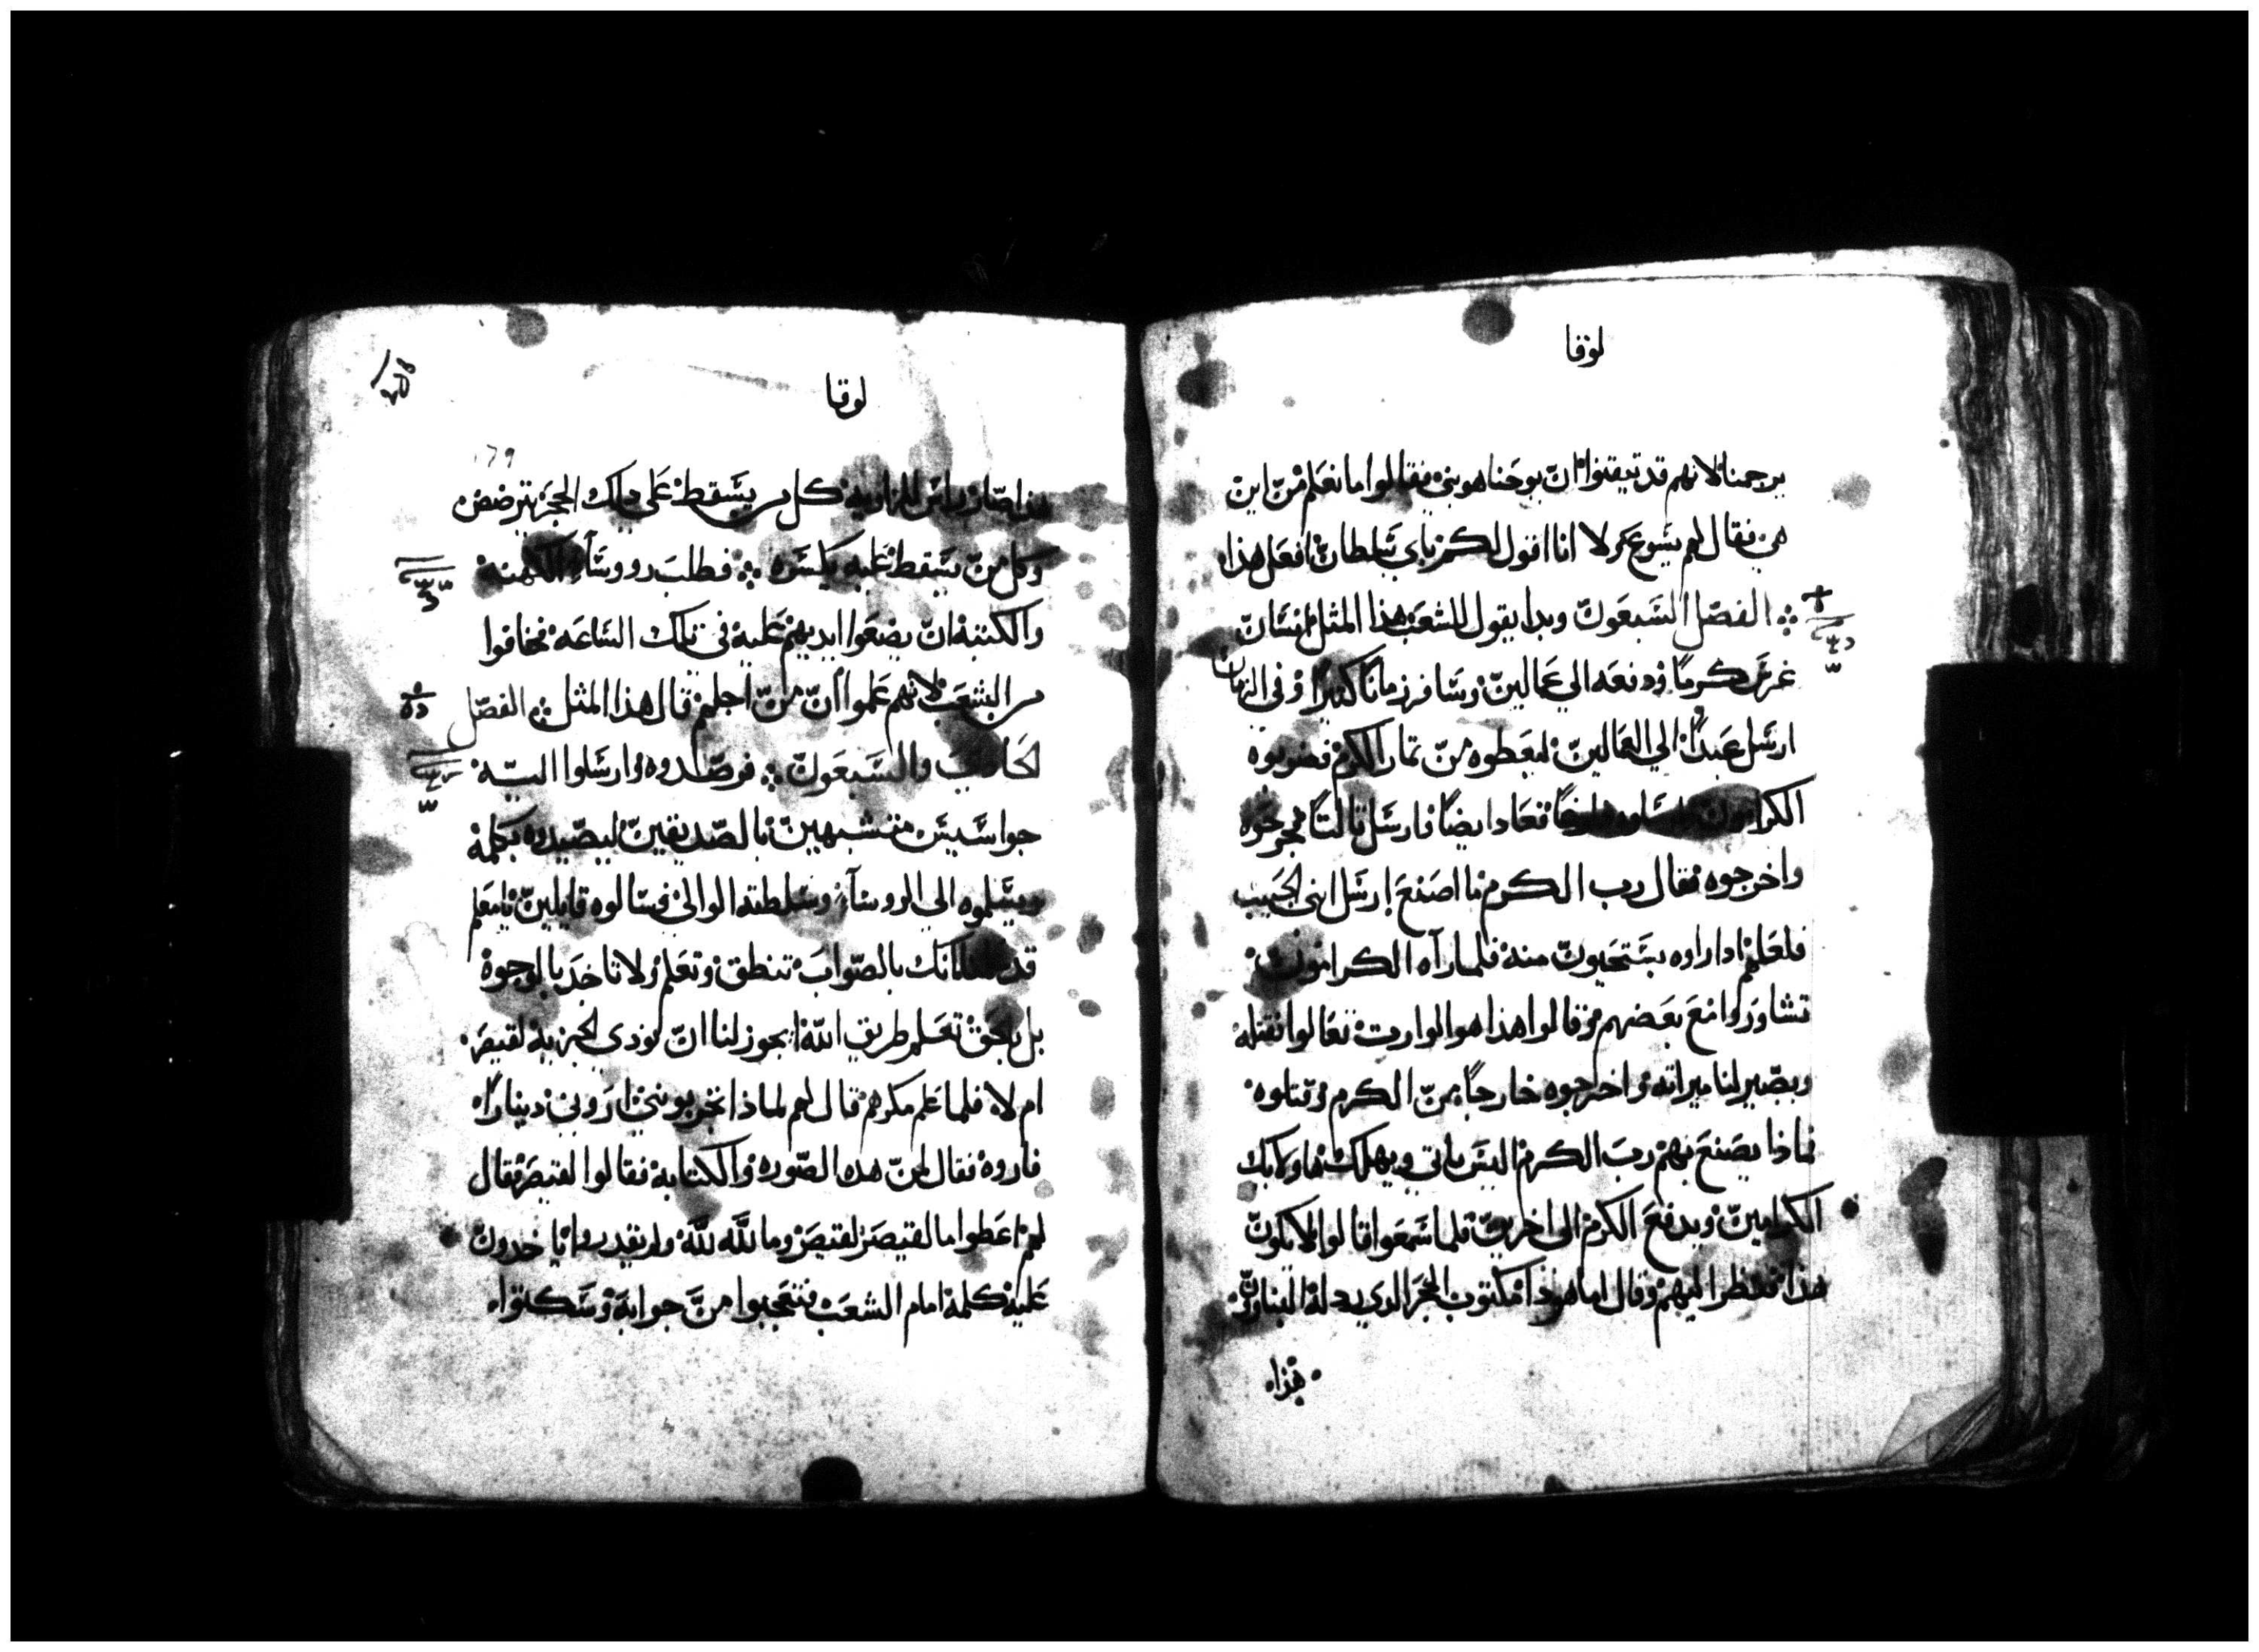 لوقا
يرجمنا لانهم قد تيقنوا ان يوحنا هو نبي فقالوا ما نعلم من اين
هي فقال لهم يسوع ولا انا اقول لكم باي سلطان افعل هذا
الفصل السبعون وبدا يقول للشعب هذا المثل انسان
غرس كرما ودفعه الي عمالين وسافر زمانا كبيرا وفي الزمان
ارسل عبدا الي العمالين ليعطوه من تمار الكرم فضربوه
الكرامون فعاد ايضا فارسل تالتا فجرحوه
واخرجوه فقال رب الكرم ما اصنع ارسل ابني الحبيب
فلعلهم ادا راوه يستحيون منه فلما رآه الكرامون
تشاوروا مع بعضهم وقالوا هذا هو الوارت تعالوا نقتله
ويصير لنا ميراته واخرجوه خارجا من الكرم وقتلوه
فماذا يصنع بهم رب الكرم اليس ياتي ويهلك هاولايك
الكرامين ويدفع الكرم الى اخرين فلما سمعوا قالوا لا يكون
هذا فنظر اليهم وقال اما هوذا مكتوب الحجر الدي ردله البناوون
هذا
لوقا
179
هذا صار راس الزاويه كل من يسقط على دلك الحجر يترضض
وكل من يسقط عليه يكسره فطلب رووسآء الكهنه
والكتبه ان يضعوا ايديهم عليه في تلك الساعه فخافوا
من الشعب لانهم علموا ان من اجلهم قال هذا المثل الفصل
الحادي والسبعون فرصدوه وارسلوا اليه
جواسيس متشبهين بالصديقين ليصيدوه بكلمه
ويسلموه الي الروسآء وسلطنه الوالي فسالوه قايلين يا معلم
قد علمنا انك بالصواب تنطق وتعلم ولا تاخد بالوجوه
بل بحق تعلم طريق الله ايجوز لنا ان نودي الجزيه لقيصر
ام لا فلما علم مكرهم قال لهم لماذا تجربونني اروني دينارا
فاروه فقال لمن هده الصوره والكتابه فقالوا لقيصر فقال
لهم اعطوا ما لقيصر لقيصر وما لله لله ولم يقدروا ياخدون
عليه كلمة امام الشعب فتعجبوا من جوابه وسكتوا